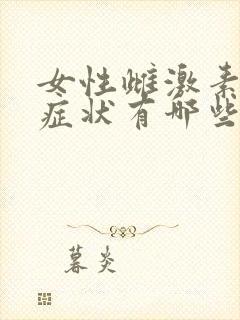 女性雌激素
症状有哪些
暮炎